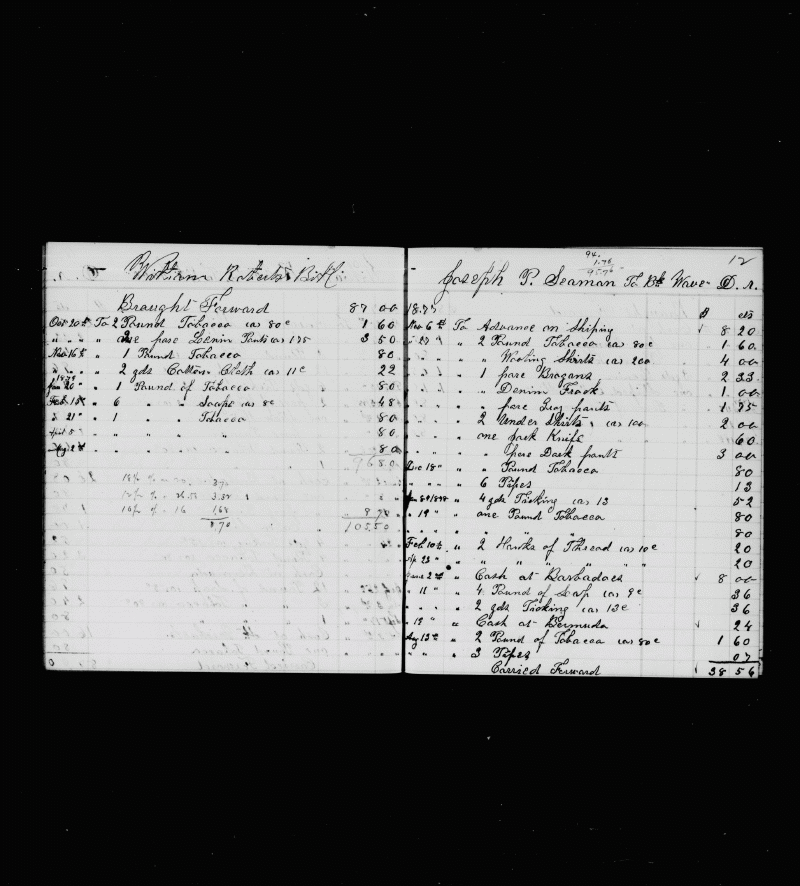 William Roberts
Braught Forward 87 00
Oct 20th To 2 Pound Tobacoa as 80c 1 60
" " " " one pare Denim Pants as 175 3 50
Nov 16th " 1 Pound Tobacco 80
" " " 2 yds Cattom Cloth as 11c 22
1878
Jan 20th " 1 Pound of Tobacco 80
Feb 15th " 6 " " Soape as 8c 48
" 21" " 1 " Tobacoa 80
" " " " 80
" " " " 80
96 80
8 70
1,68
8 70
105 50
94.
1.76
95.76
12
Joseph P. Seaman To Bk Wave D. r.
1877 $ cts
Nov 6th To Advance on Shiping 8 20
" " " 2 Pound Tobacoa as 80c 1 60
" " " " Wooling Shirts as 200 4 00
" " " 1 pare Brogans 2 23
" " " " Denim Frock 1 00
" " " " pare Gray pants 1 75
" " " 2 Under Shirts as 100 2 00
" " " one Jack Knife 60
" " " " pare Dark pants 3 00
Dec 18" " " Pound Tobacco 80
" " " 6 Pipes 13
1878 " 4 yds Ticking as 13 52
" 19" " one Pound Tobacca 80
" " " " " " 80
Feb 10th " 2 Hanks of Thread as 10c 20
Ap 23" " " " " " " 20
June 2nd " Cash at Barbadoes 8 00
" 11" " 4 Pound of Soap as 9c 36
" " " 2 yds Ticking as 18c 36
" 19" " Cash at Bermuda 24
Aug 13th " 2 Pound of Tobacca as 80c 1 60
" " " 3 Pipes 07
Carried Forward 38 56